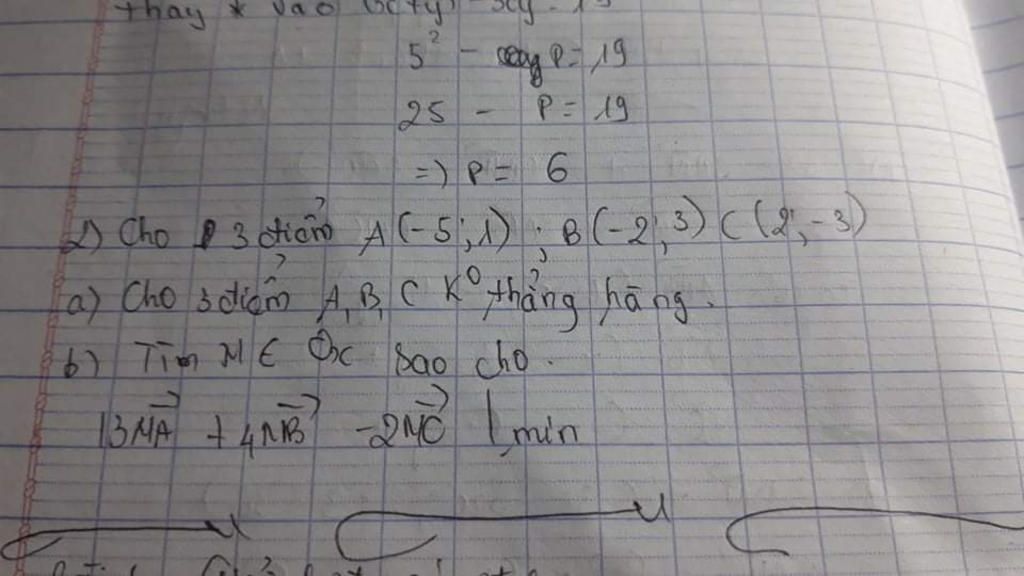 thay * vào
5² - P = 19
25 - P = 19
=> P = 6
2) Cho 3 điểm A(-5;1) ; B(-2;3) C(2;-3)
a) Cho 3 điểm A, B, C K⁰ thẳng hàng.
b) Tìm M ∈ Ox sao cho.
|3MA + 4MB - 2MC| min